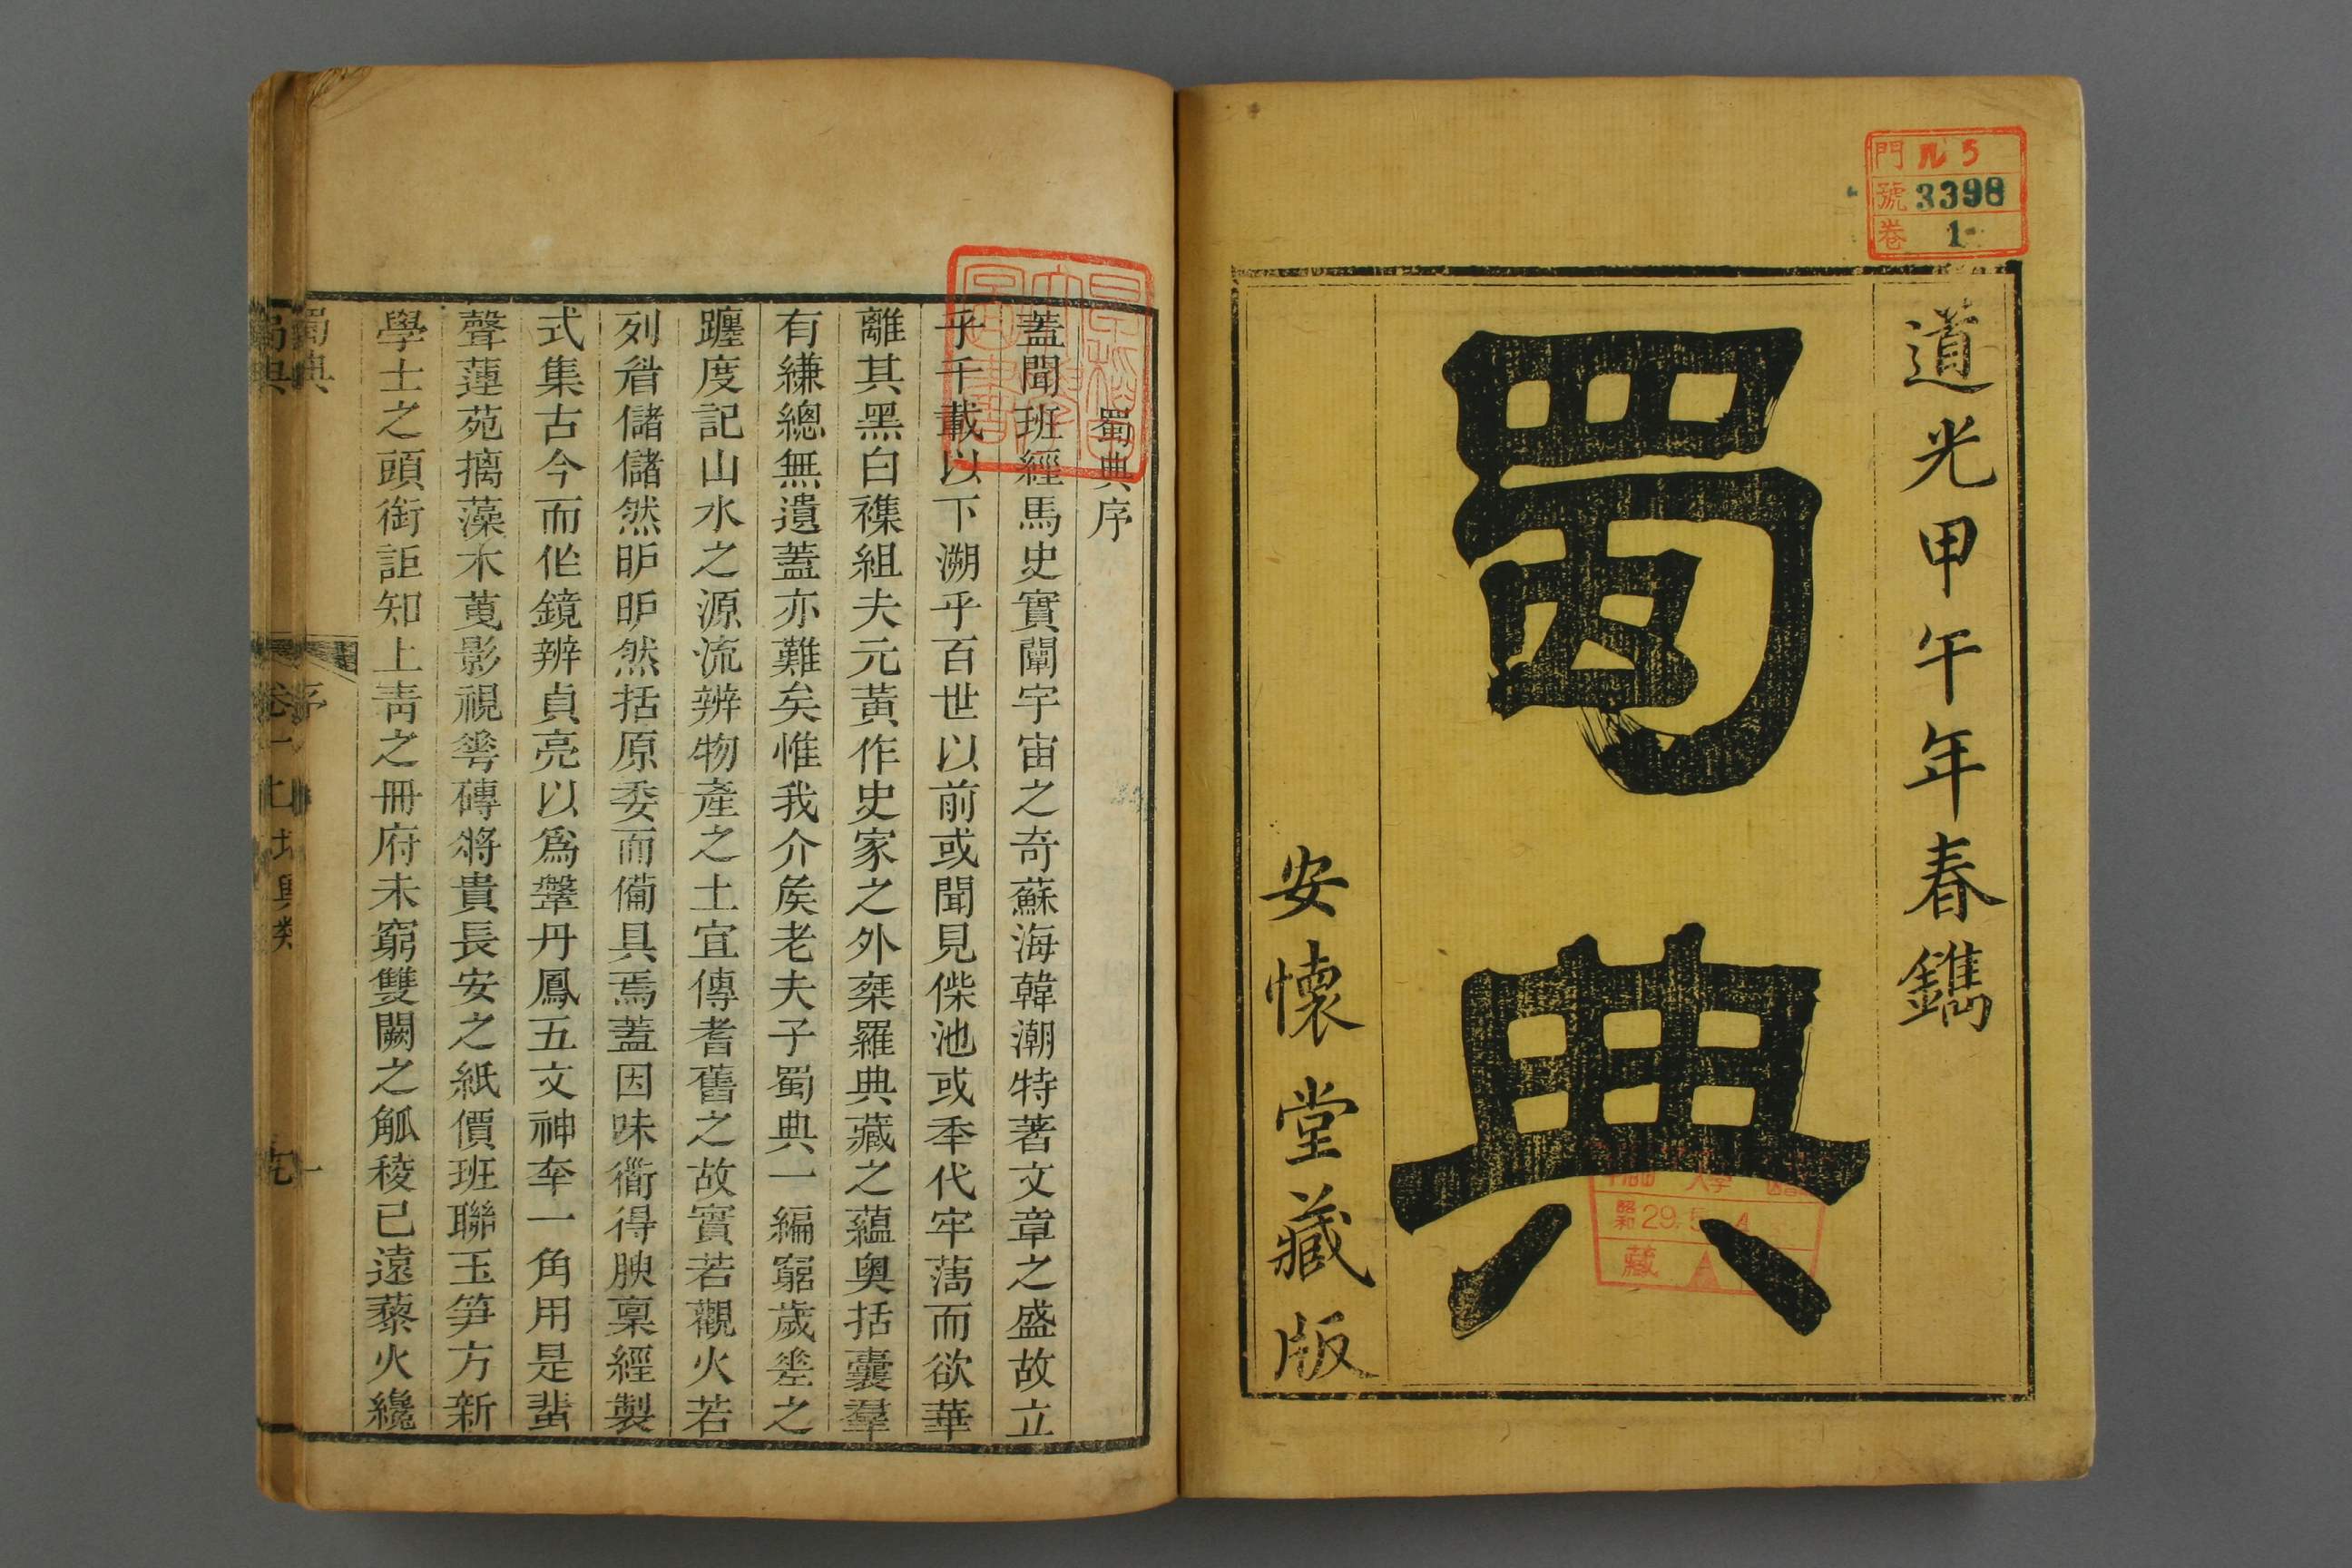 門 ル5
號 3398
卷 1
道光甲午年春鐫
蜀典
安懷堂藏版
昭和 29. 5. 4
藏
蜀典序
蓋聞班經馬史實闡宇宙之奇蘇海韓潮特著文章之盛故立
乎千載以下溯乎百世以前或聞見傑池或年代牢蕅而欲華
離其黑白襍組夫元黃作史家之外乘羅典藏之蘊奧括囊羣
有縑總無遺蓋亦難矣惟我介矦老夫子蜀典一編窮歲差之
躔度記山水之源流辨物產之土宜傳耆舊之故實若觀火若
列眉儲儲然昈昈然括原委而備具焉蓋因味衟得腴稟經製
式集古今而作鏡辨貞亮以爲鞶丹鳳五文神羍一角用是蜚
聲蓮苑摛藻木蒐影視甇磚將貴長安之紙價班聯玉笋方新
學士之頭銜詎知上靑之冊府未窮雙闕之觚稜已遠藜火纔
蜀典
序
一